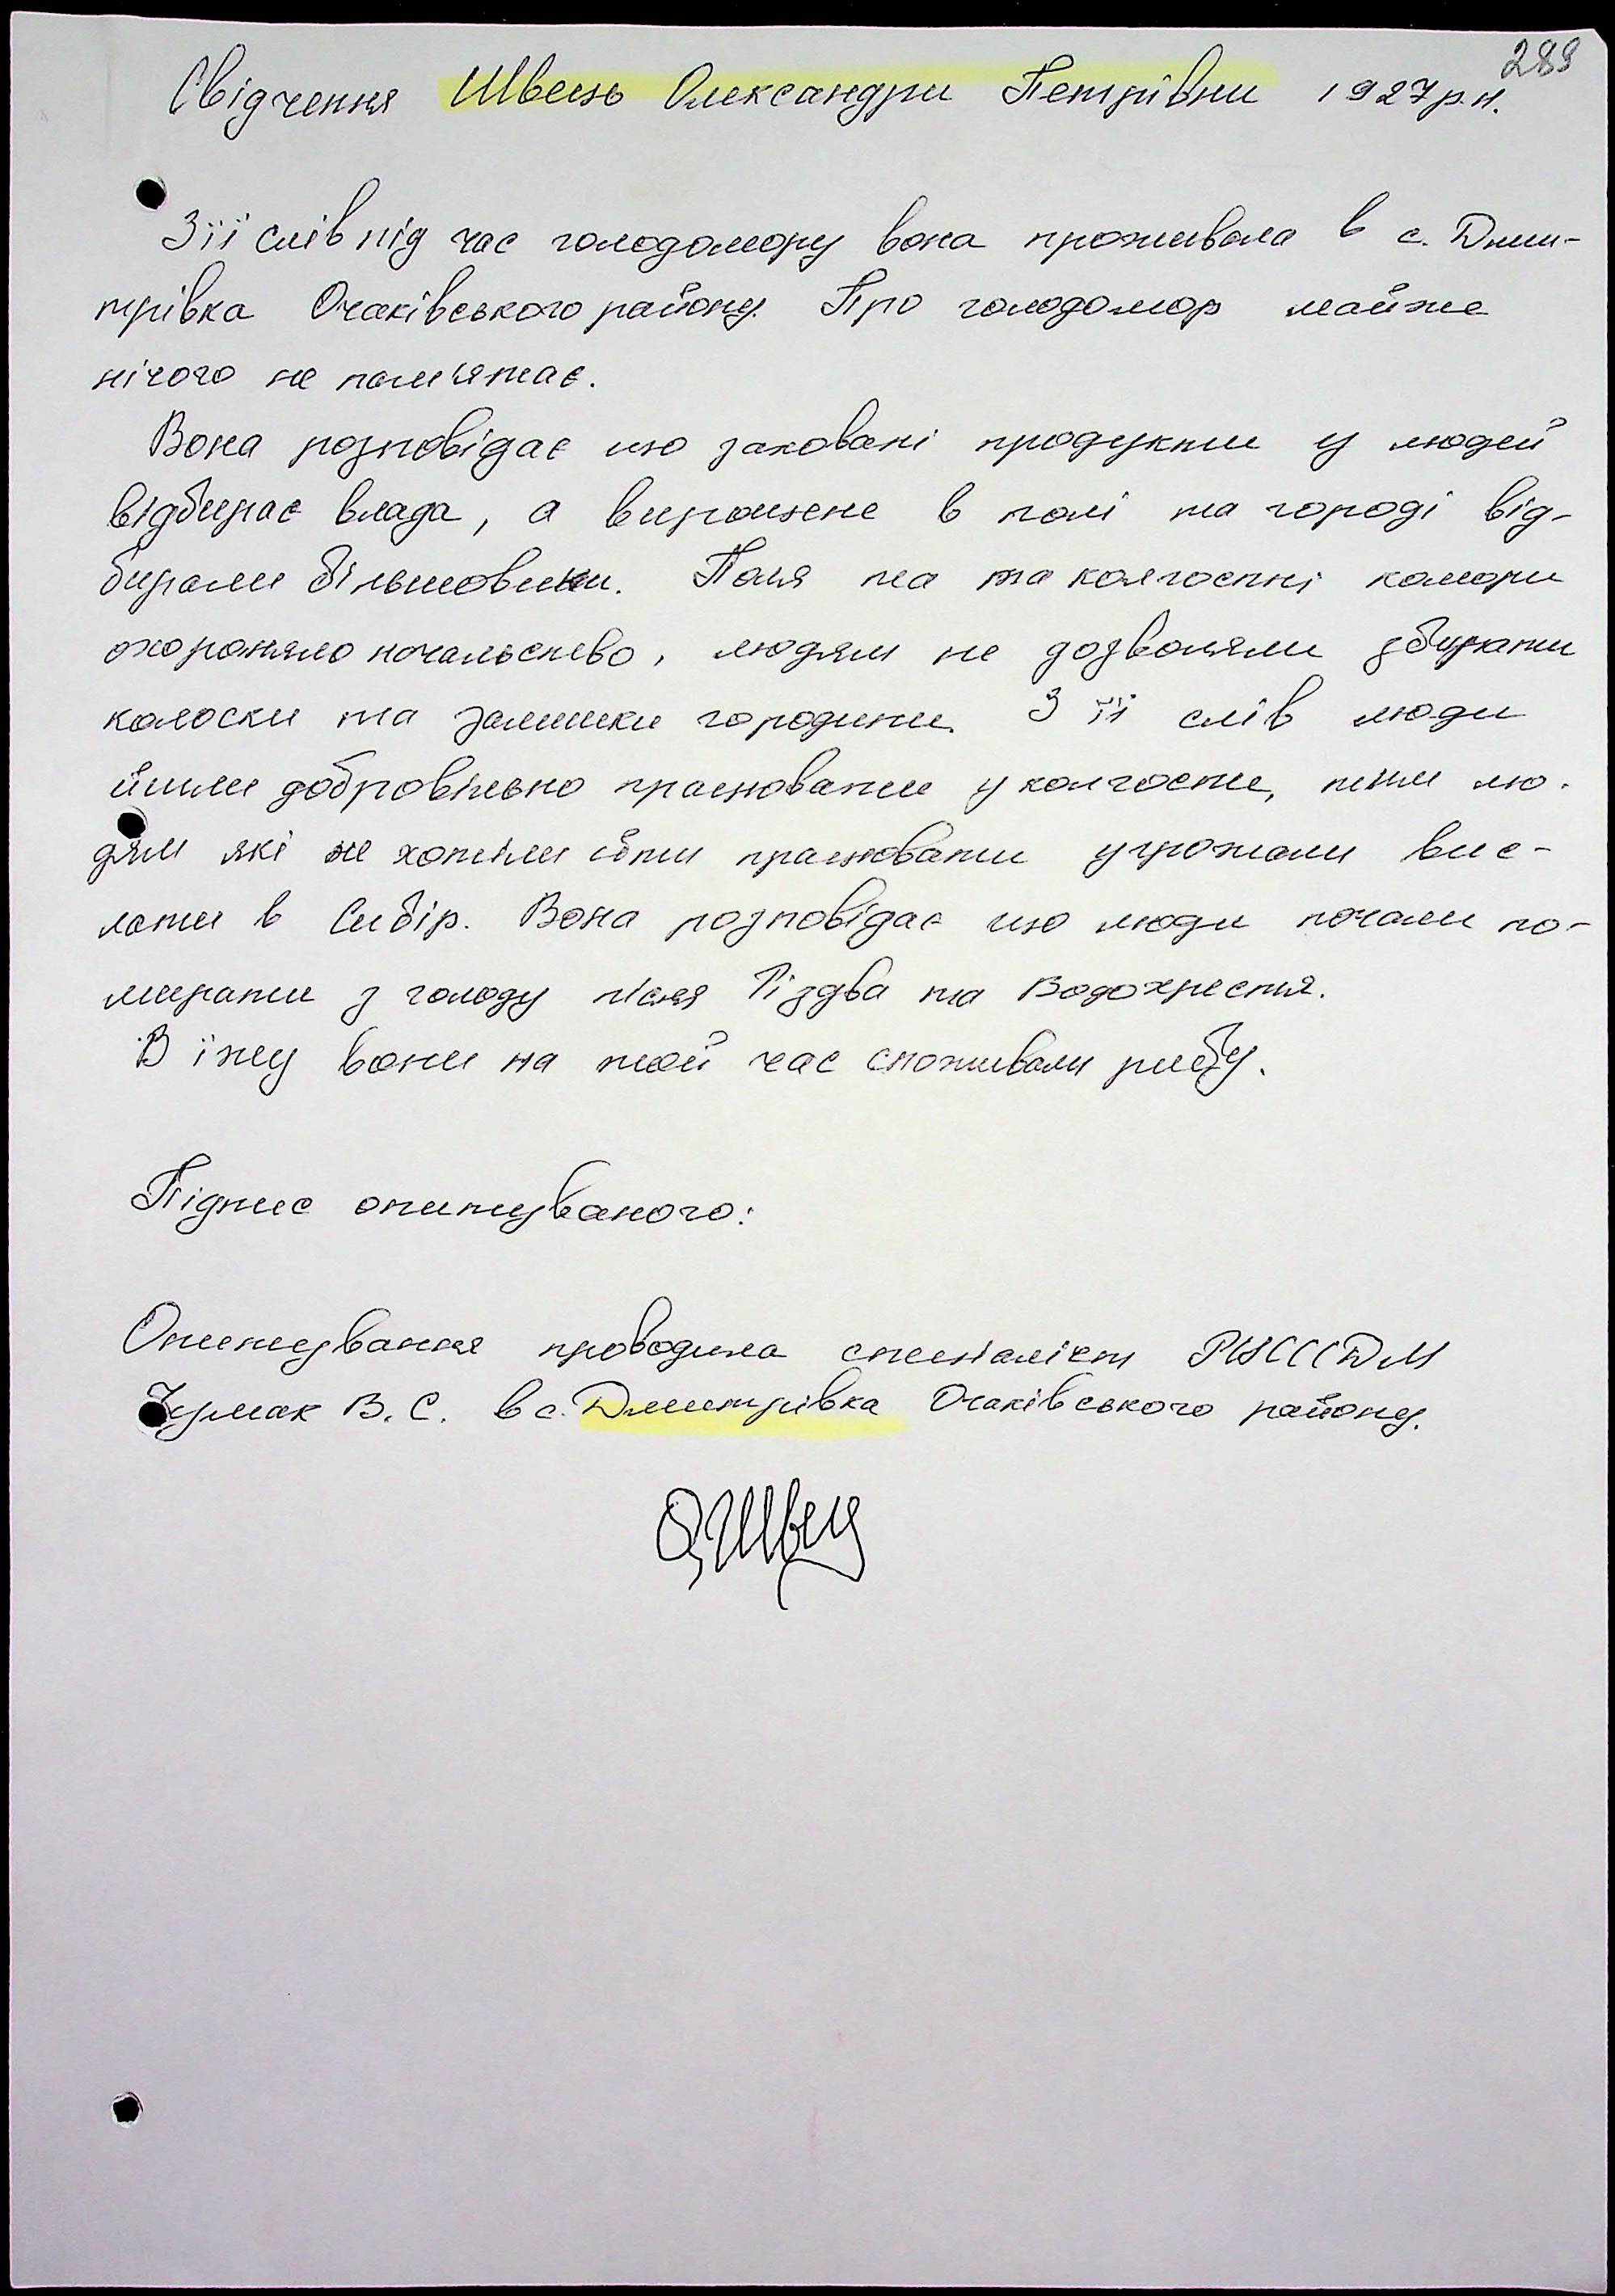 289
Свідчення Швець Олександри Петрівни 1927р.н.
З її слів під час голодомору вона проживала в с. Дми-
трівка Очаківського району. Про голодомор майже
нічого не пам'ятає.
Вона розповідає що заховані продукти у людей
відбирає влада, а вирощене в полі та городі від-
бирали більшовики. Поля та та колгоспні комори
охороняло начальство, людям не дозволяли збирати
колоски та залишки городини. З її слів люди
йшли добровільно працювати у колгоспи, тим лю-
дям які не хотіли йти працювати угрожали висе-
лати в Сибір. Вона розповідає що люди почали по-
мирати з голоду після Різдва та Водохрестя.
В їжу вони на той час споживали рибу.
Підпис опитуваного:
Опитування проводила спеціаліст РЦСССДМ
Чумак В.С. в с. Дмитрівка Очаківського району.
О.Швец